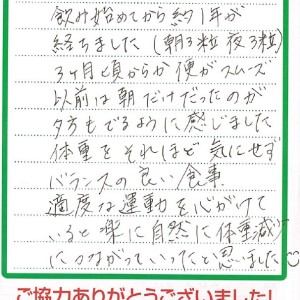 飲み始めてから約1年が
経ちました(朝3粒 夜3粒)
3ヶ月頃からか便がスムーズ
以前は朝だけだったのが
夕方もでるように感じました
体重をそれほど気にせず
バランスの良い食事
適度な運動を心がけて
いると楽に自然に体重減少
につながっていったと思いました
ご協力ありがとうございました!